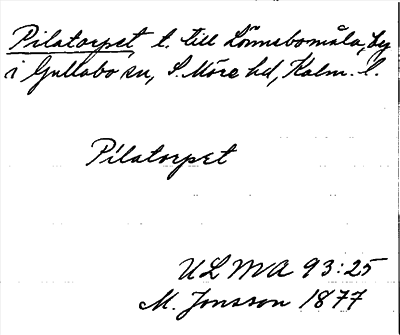 Pilatorpet t. till Lönnebomåla, by
i Gullabo sn, S. Möre hd, Kalm. l.
Pilatorpet
ULMA 93:25
M. Jonsson 1877